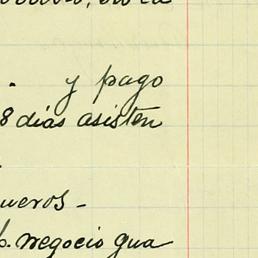 y pago
8 días asisten
ueros -
negocio gua